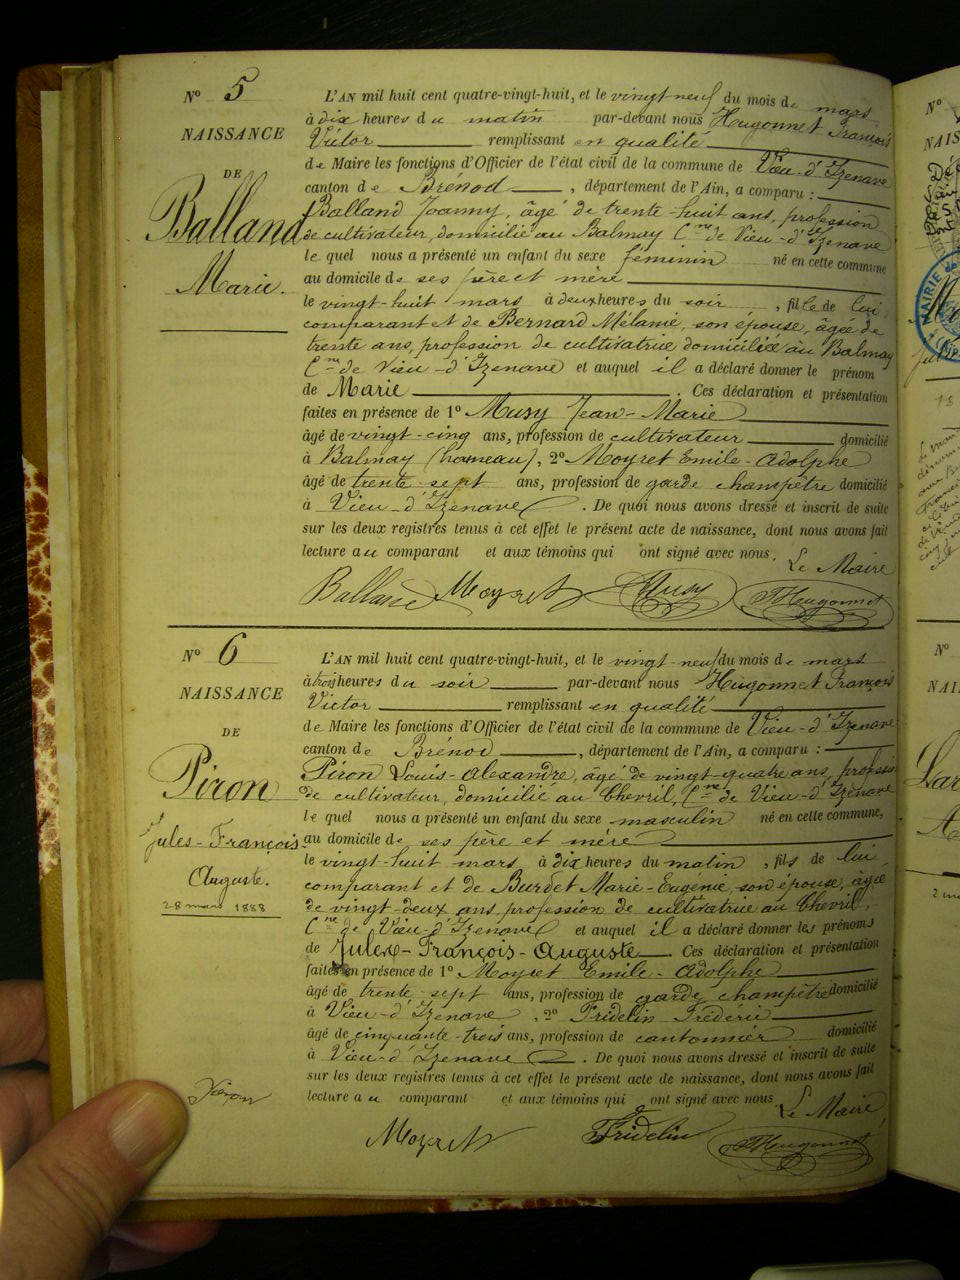 N° 5
NAISSANCE
DE
Balland
Marie.
L'AN mil huit cent quatre-vingt-huit, et le vingt neuf du mois de mars
à dix heures du matin par-devant nous Hugonnet François
Victor remplissant en qualité
de Maire les fonctions d'Officier de l'état civil de la commune de Vieu-d'Izenave
canton de Brénod, département de l'Ain, a comparu :
Balland Joanny, âgé de trente-huit ans, profession
de cultivateur, domicilié au Balmay Cne de Vieu-d'Izenave
le quel nous a présenté un enfant du sexe féminin né en cette commune
au domicile de ses père et mère
le vingt-huit mars à deux heures du soir, fille de lui
comparant et de Bernard Mélanie, son épouse, âgée de
trente ans, profession de cultivatrice domiciliée au Balmay
Cne de Vieu-d'Izenave et auquel il a déclaré donner le prénom
de Marie Ces déclaration et présentation
faites en présence de 1° Musy Jean-Marie
âgé de vingt-cinq ans, profession de cultivateur domicilié
à Balmay (hameau), 2° Moyret Emile-Adolphe
âgé de trente-sept ans, profession de garde champêtre domicilié
à Vieu-d'Izenave. De quoi nous avons dressé et inscrit de suite
sur les deux registres tenus à cet effet le présent acte de naissance, dont nous avons fait
lecture au comparant et aux témoins qui ont signé avec nous. Le Maire
Balland Moyret Musy Hugonnet
N° 6
NAISSANCE
DE
Piron
Jules-François-
Auguste.
28 mars 1888
L'AN mil huit cent quatre-vingt-huit, et le vingt-neuf du mois de mars
à trois heures du soir par-devant nous Hugonnet François
Victor remplissant en qualité
de Maire les fonctions d'Officier de l'état civil de la commune de Vieu-d'Izenave
canton de Brénod, département de l'Ain, a comparu :
Piron Louis-Alexandre, âgé de vingt-quatre ans, profession
de cultivateur, domicilié au Chevril, Cne de Vieu-d'Izenave
le quel nous a présenté un enfant du sexe masculin né en cette commune,
au domicile de ses père et mère
le vingt-huit mars, à dix heures du matin, fils de lui
comparant et de Burdet Marie-Eugénie, son épouse, âgée
de vingt-deux ans, profession de cultivatrice au Chevril,
Cne de Vieu-d'Izenave et auquel il a déclaré donner les prénoms
de Jules-François-Auguste Ces déclaration et présentation
faites en présence de 1° Moyret Emile-Adolphe
âgé de trente-sept ans, profession de garde champêtre domicilié
à Vieu-d'Izenave, 2° Fridelin Frédéric
âgé de cinquante-trois ans, profession de cantonnier domicilié
à Vieu-d'Izenave. De quoi nous avons dressé et inscrit de suite
sur les deux registres tenus à cet effet le présent acte de naissance, dont nous avons fait
lecture au comparant et aux témoins qui ont signé avec nous Le Maire
Piron
Moyret Fridelin Hugonnet